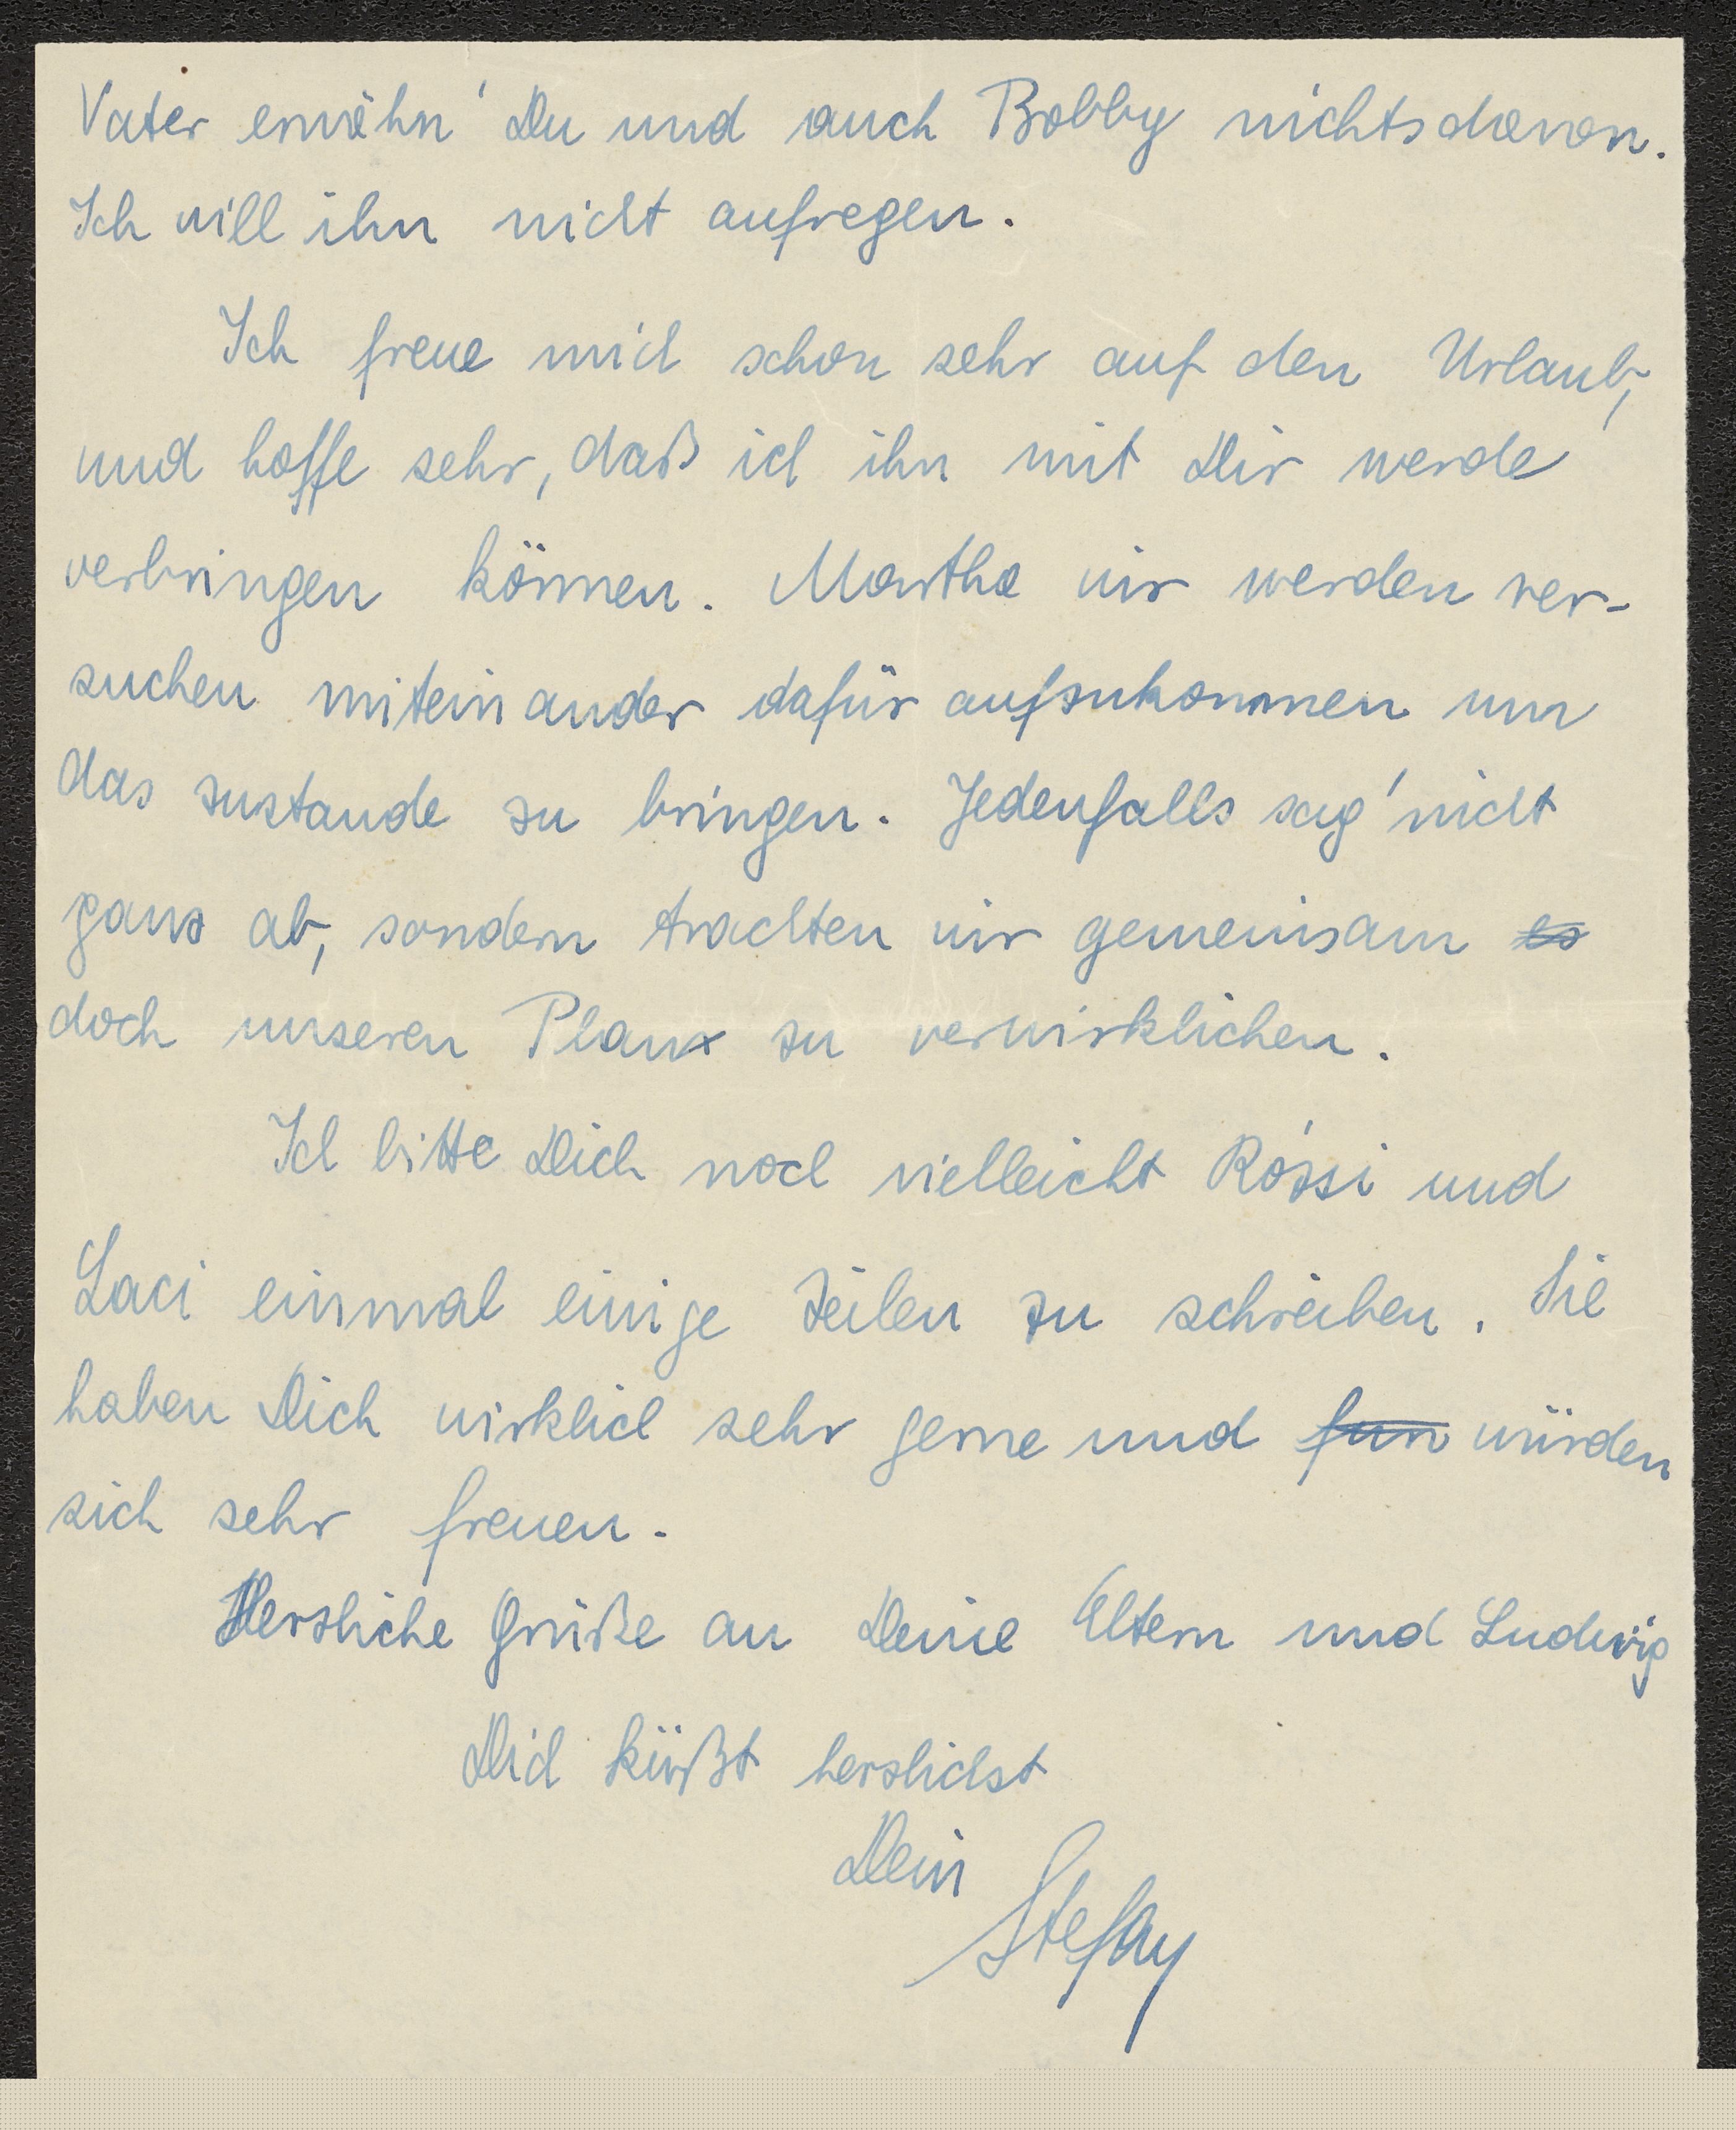 Vater erwähn' Du und auch Bobby nichts davon.
Ich will ihn nicht aufregen.
Ich freue mich schon sehr auf den Urlaub,
und hoffe sehr, daß ich ihn mit Dir werde
verbringen können. Martha wir werden ver-
suchen miteinander dafür aufzukommen um
das zustande zu bringen. Jedenfalls sag' nicht
ganz ab, sondern trachten wir gemeinsam es
doch unseren Plan zu verwirklichen.
Ich bitte Dich noch vielleicht Rózsi und
Laci einmal einige Zeilen zu schreiben. Sie
haben Dich wirklich sehr gerne und würden
sich sehr freuen.
Herzliche Grüße an Deine Eltern und Ludwig
Dich küßt herzlichst
Dein